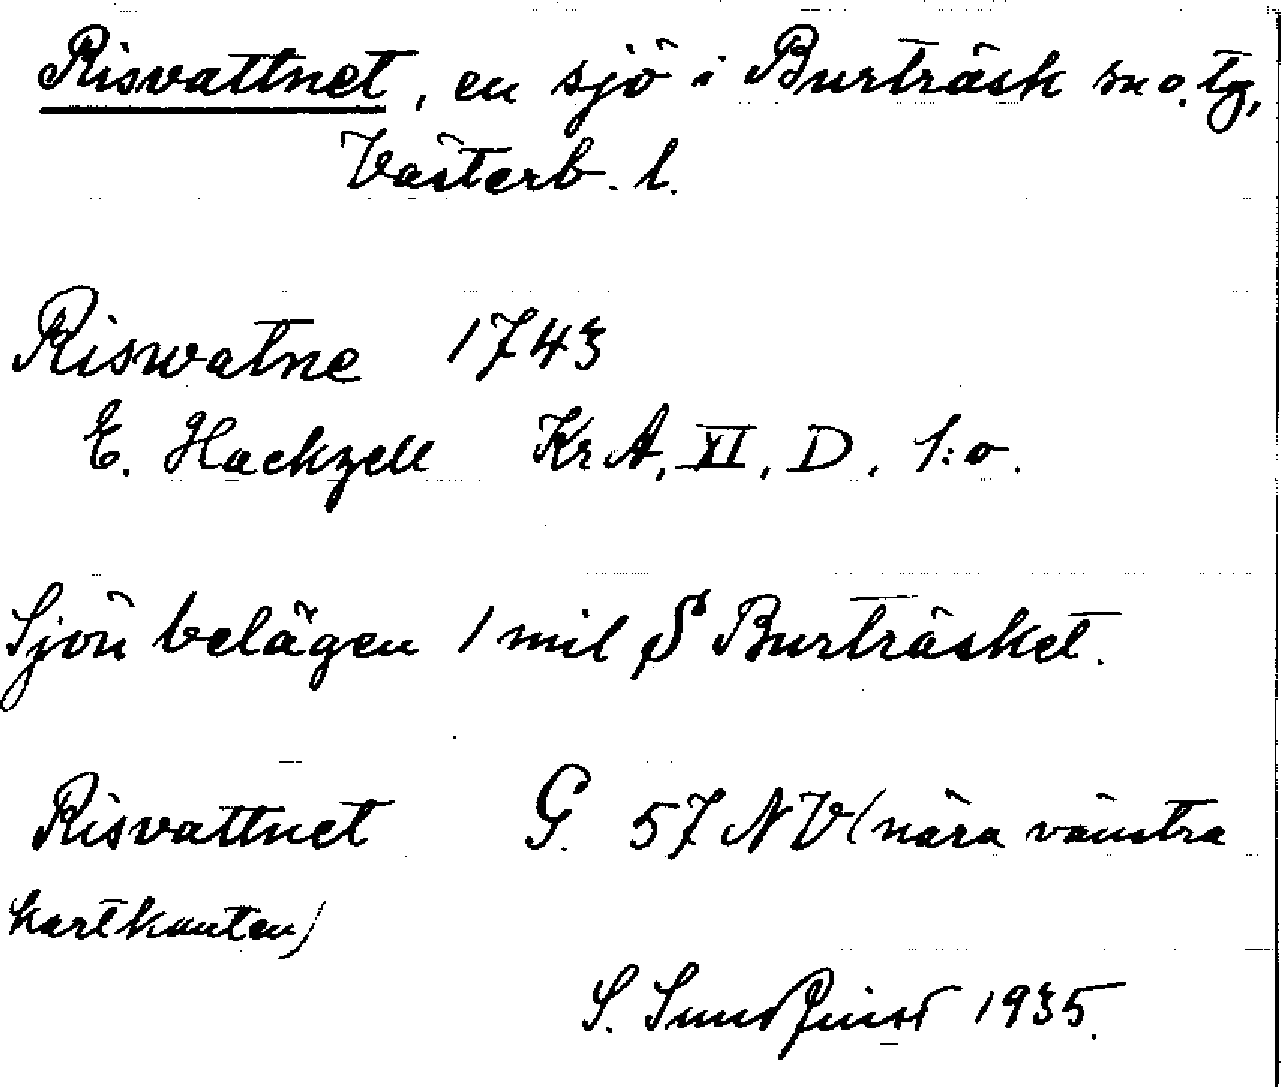 Risvattnet, en sjö i Burträsk sn o. tg,
Västerb. l.
Riswatne 1743
E. Hackzell KrA, XI, D. 1:o.
Sjön belägen 1 mil S Burträsket.
Risvattnet G. 57 NV (nära vänstra
kartkanten)
S. Sundquist 1935.